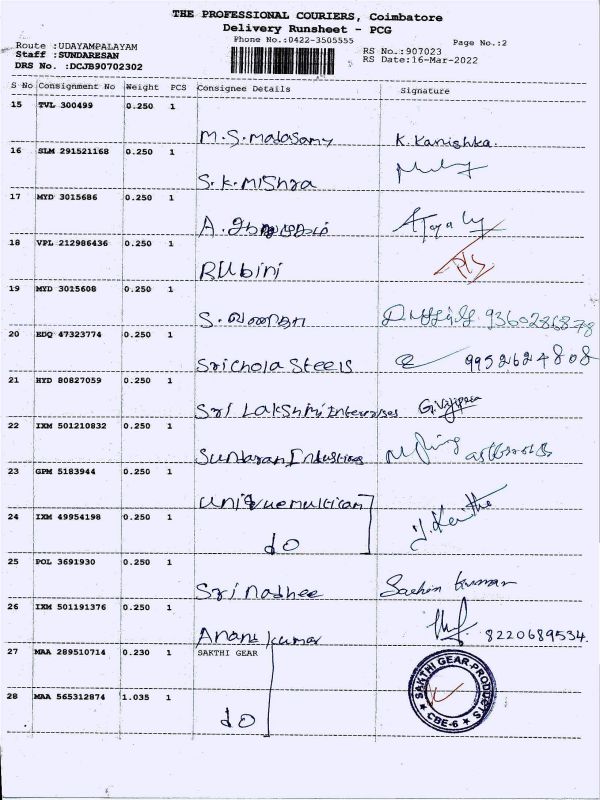 THE PROFESSIONAL COURIERS, Coimbatore
Delivery Runsheet - PCG
Phone No.:0422-3505555
Page No.:2
Route :UDAYAMPALAYAM
Staff :SUNDARESAN
DRS No. :DCJB90702302
RS No.:907023
RS Date:16-Mar-2022
S No Consignment No Weight PCS Consignee Details Signature
15 TVL 300499 0.250 1
M.S.Madasamy K. Kanishka.
16 SLM 291521168 0.250 1
S.K.Mishra
17 MYD 3015686 0.250 1
A.
18 VPL 212986436 0.250 1
Rubini
19 MYD 3015608 0.250 1
S. வனிதா 9360286878
20 EDQ 47323774 0.250 1
Srichola Steels 9952624808
21 HYD 80827059 0.250 1
Sri Lakshmi Enterprises
22 IXM 501210832 0.250 1
Sundaran Industries
23 GPM 5183944 0.250 1
Uniquemultican
24 IXM 49954198 0.250 1
do
25 POL 3691930 0.250 1
Sri Nadhee Sachin kumar
26 IXM 501191376 0.250 1
Anand kumar 8220689534.
27 MAA 289510714 0.230 1 SAKTHI GEAR
28 MAA 565312874 1.035 1
do
SAKTHI GEAR PRODUCTS
★ CBE-6 ★